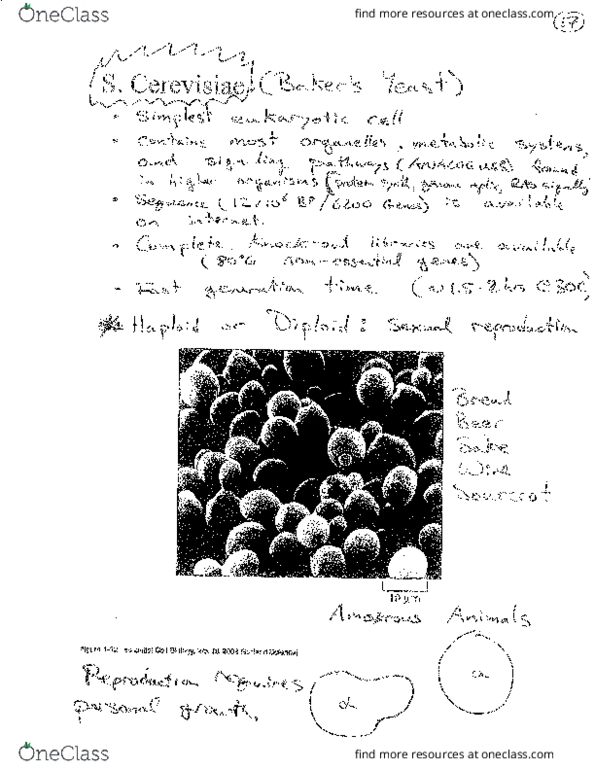 OneClass
find more resources at oneclass.com
17
S. Cerevisiae (Baker's Yeast)
• Simplest eukaryotic cell
• Contains most organelles, metabolic systems,
and signaling pathways (ANALOGUES) found
in higher organisms (protein synth, genome replic,
• Sequence (12/10⁶ BP/6200 Genes) is available
on internet.
• Complete Knock-out libraries are available
(80% non-essential genes)
• Fast generation time (~1.5-2 hrs @ 30C)
Haploid or Diploid: Sexual reproduction
Bread
Beer
Sake
Wine
10 µm
Amorous Animals
Figure 1-
Reproduction requires
personal growth.
α
a
OneClass
find more resources at oneclass.com